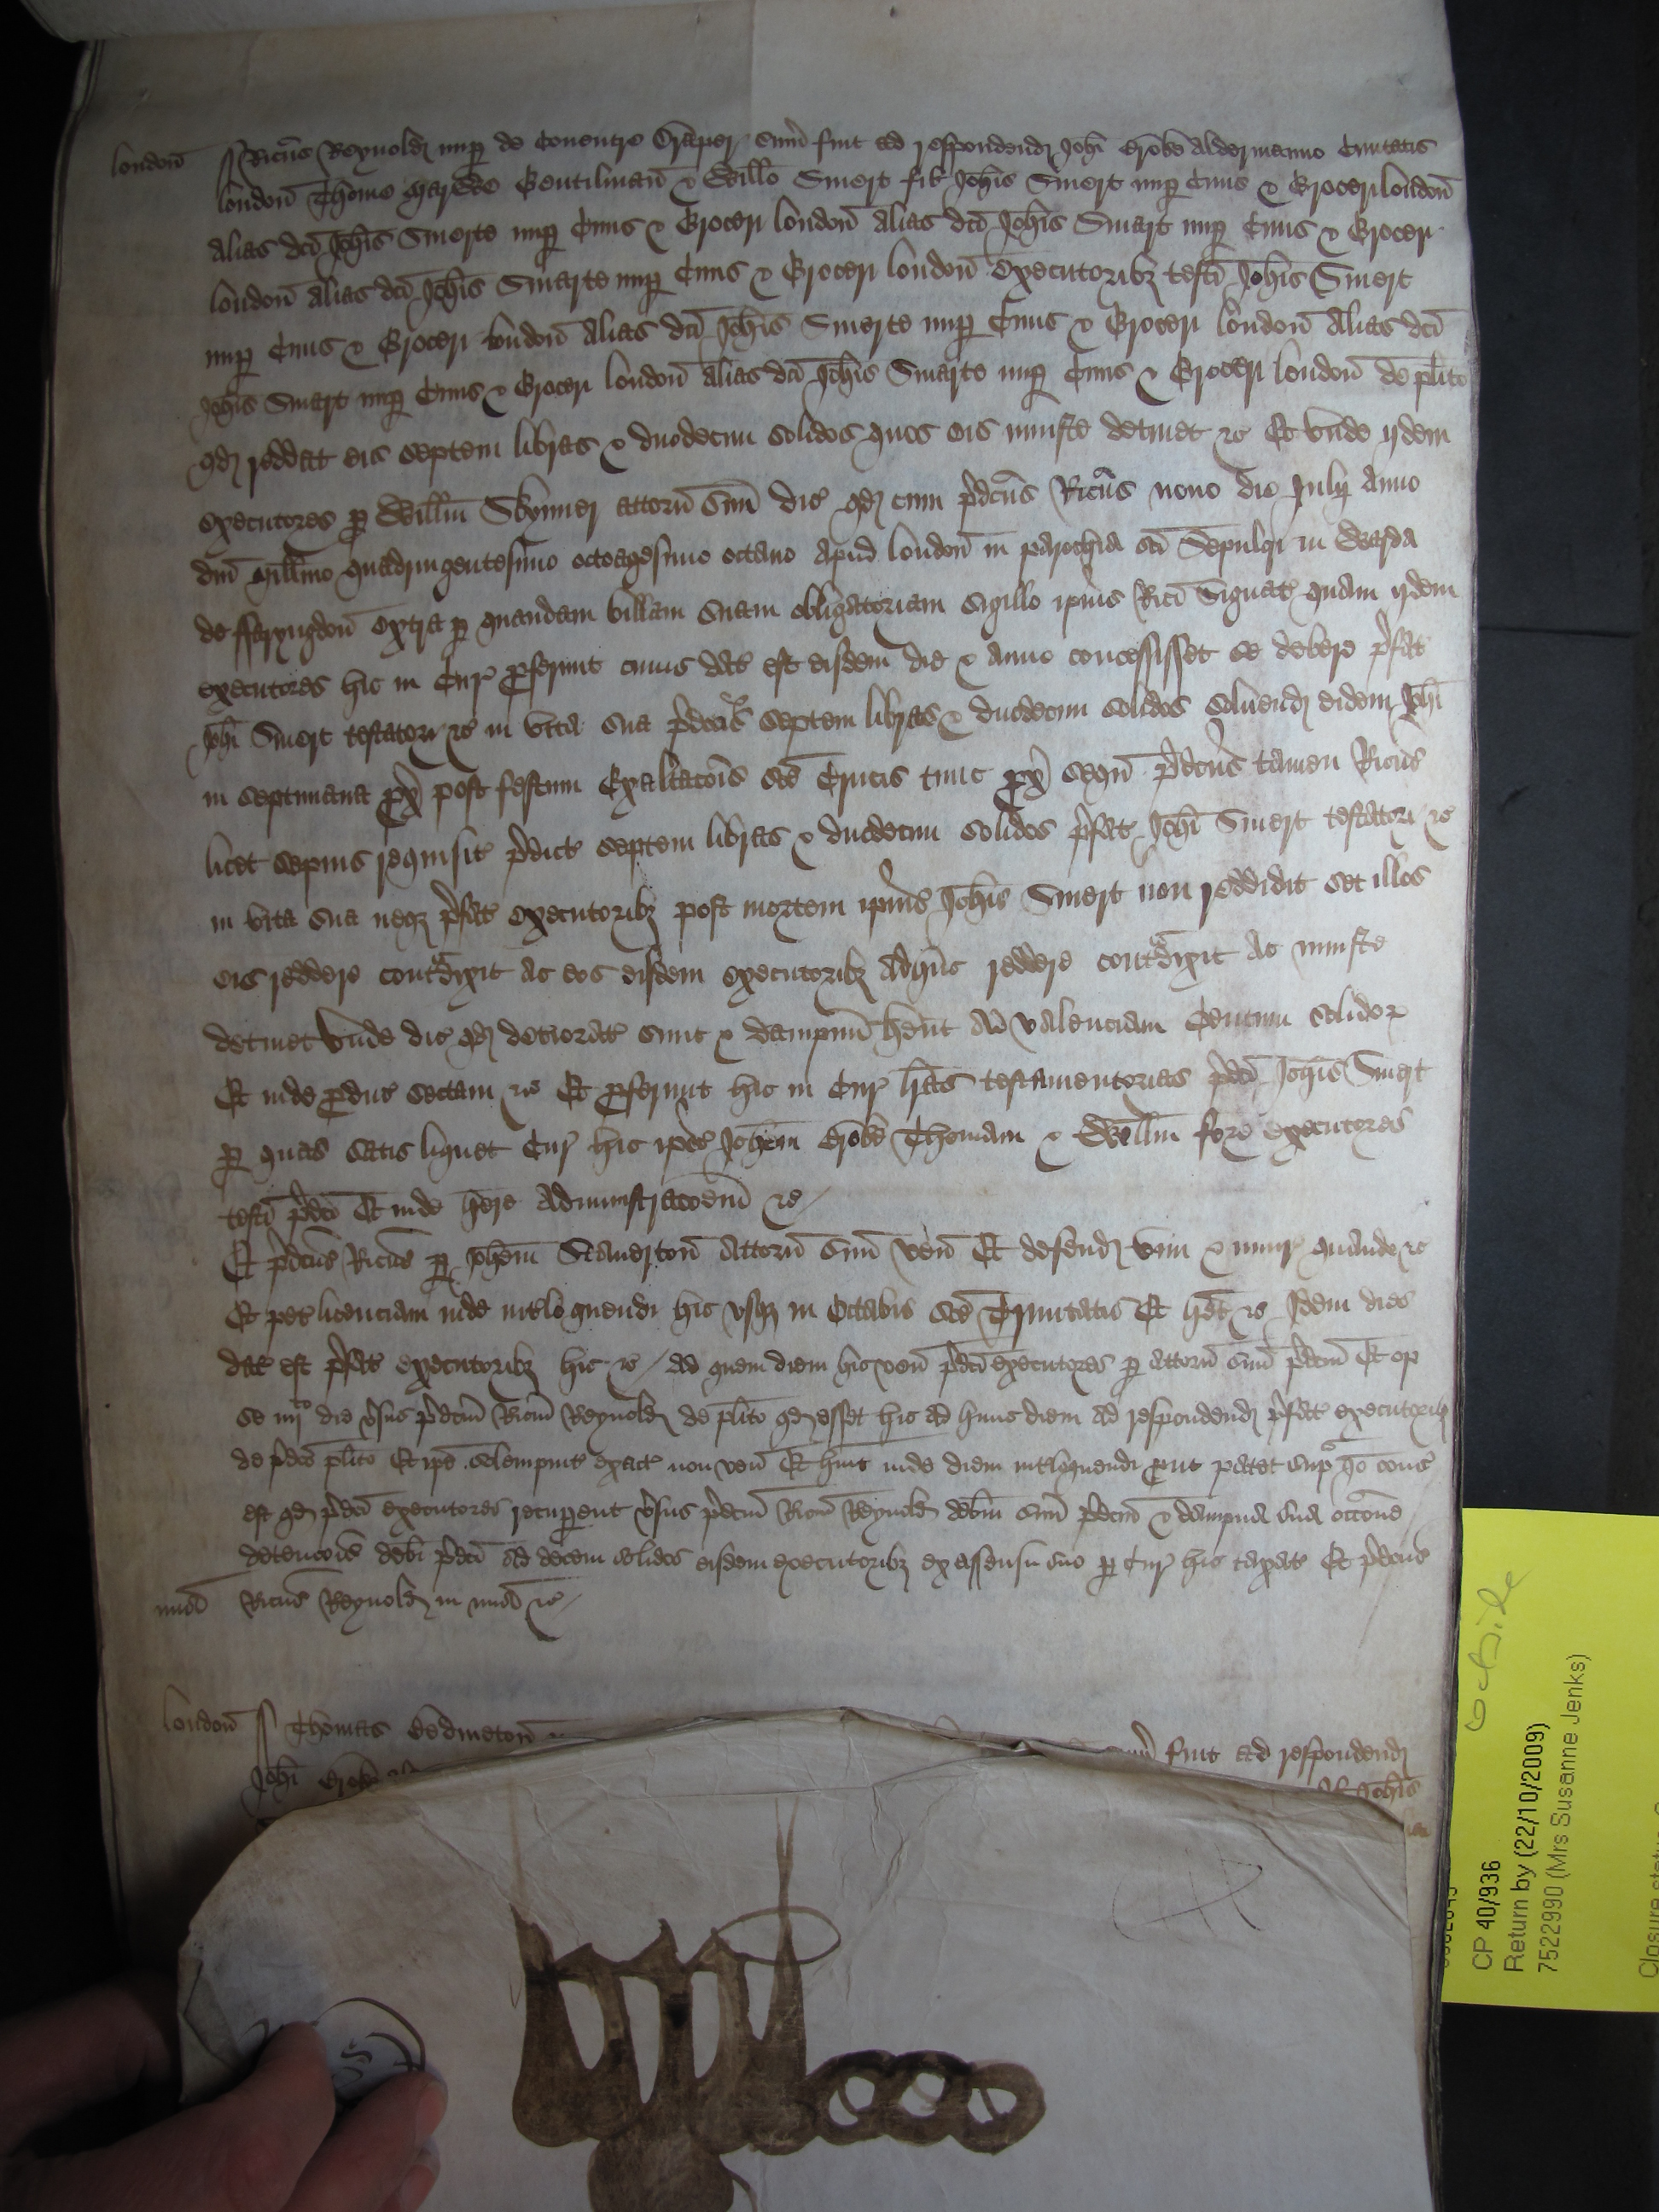 london Ricus Reynold nup de Couentre Draper sum fuit ad respondend Johi Broke Aldermanno Ciuitatis
london Thome Gentilman & Willo Smert fil Johis Smert nup Ciuis & Groceri london
alias dci Johis Smerte nup Ciuis & Groceri london alias dci Johis Smart nup Ciuis & Groceri
london alias dci Johis Smarte nup Ciuis & Groceri london executorib testi Johis Smert
nup Ciuis & Groceri london alias dci Johis Smerte nup Ciuis & Groceri london alias dci
Johis Smart nup Ciuis & Groceri london alias dci Johis Smarte nup Ciuis & Groceri london de plito
qd reddat eis septem libras & duodecim solidos quos eis iniuste detinet &c Et vnde ijdem
executores p Willm Skynner attorn suu dic qd cum pdcus Ricus nono die Julij Anno
dni Millimo quadringentesimo octogesimo octauo apud london in parochia sci Sepulcri in Warda
de ffaryngdon extra p quandam billam suam obligatoriam sigillo ipius Rici signat quam ijdem
executores hic in Cur pferunt cuius dat est eisdem die & anno concessisset se debere pfat
Johi Smert testatori &c in vita sua pdcas septem libras & duodecim solidos soluend eidem Johi
in septimana px post festum Exaltacois sce Crucis tunc px sequ pdcus tamen Ricus
licet sepius requisit pdict septem libras & duodecim solidos pfat Johi Smert testatori &c
in vita sua neq pfat executorib post mortem ipius Johis Smert non reddidit set illos
eis reddere contadixit ac eos eisdem executorib adhuc reddere contadixit ac iniuste
detinet vnde dic qd deteriorat sunt & dampnu hent ad valenciam Centum solidor
Et inde produc sectam &c Et pferunt hic in Cur lras testamentarias pdci Johis Smert
p quas satis liquet Cur hic ipos Johem Broke Thomam & Willm fore executores
testi pdci Et inde here administracoem &c
Et pdcus Ricus p Johem Stauerton attorn suu ven Et defend vim & iniur quando &c
Et pet licenciam inde intloquendi hic vsq in Octabis sce Trinitatis Et het &c Idem dies
dat est pfat executorib hic &c Ad quem diem hic ven pdci executores p attorn suu pdcm Et op
se iiijto die vsus pdcm Ricm Reynold de plito qd esset hic ad hunc diem ad respondend pfat executorib
de pdco plito Et ipe solempnit exact non ven Et huit inde diem intloquendi put patet sup Io cons
est qd pdci executores recupent vsus pdcm Ricm Reynold debm suu pdcm & dampna sua occone
detencois debi pdci ad decem solidos eisdem executorib ex assensu suo p Cur hic taxat Et pdcus
mia Ricus Reynold in mia &c
london Thomas
fuit ad respondend
Johi Broke
Johis
outside
CP 40/936
Return by (22/10/2009)
7522990 (Mrs Susanne Jenks)